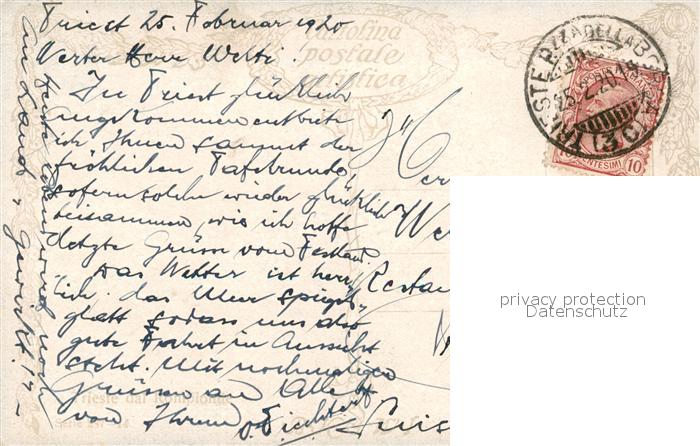 Triest 25. Februar 1920
Werter Herr Welti!
In Triest glücklich
angekommen entbiete
ich Ihnen sammt der
fröhlichen Tafelrunde,
sofern solche wieder glücklich
beisammen, wie ich hoffe
letzte Grüsse vom Festland
Das Wetter ist herr-
lich, das Meer spiegel-
glatt sodass uns also
gute Fahrt in Aussicht
steht. Mit nochmaligen
Grüssen an Alle
von Ihrem
Heute Abend wird noch
an Land gewirkt!
Cartolina
postale
artistica
TRIESTE P.ZZA DELLA BORSA
CENTESIMI 10
Herr
We
Restau
Suis
Trieste dal Rompionde
Serie
privacy protection
Datenschutz